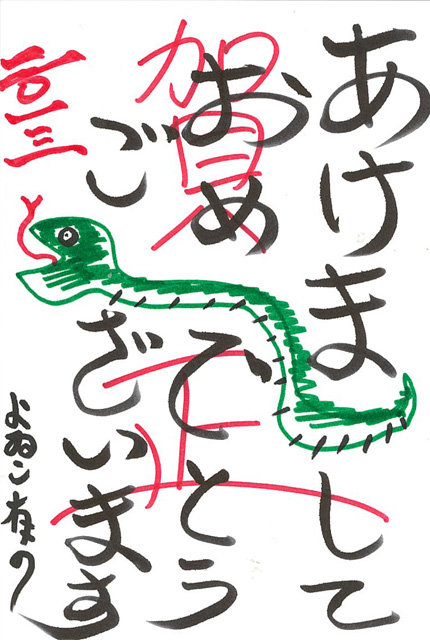 あけまして
おめでとう
ございます
賀正
二〇一三
よゐこ有の